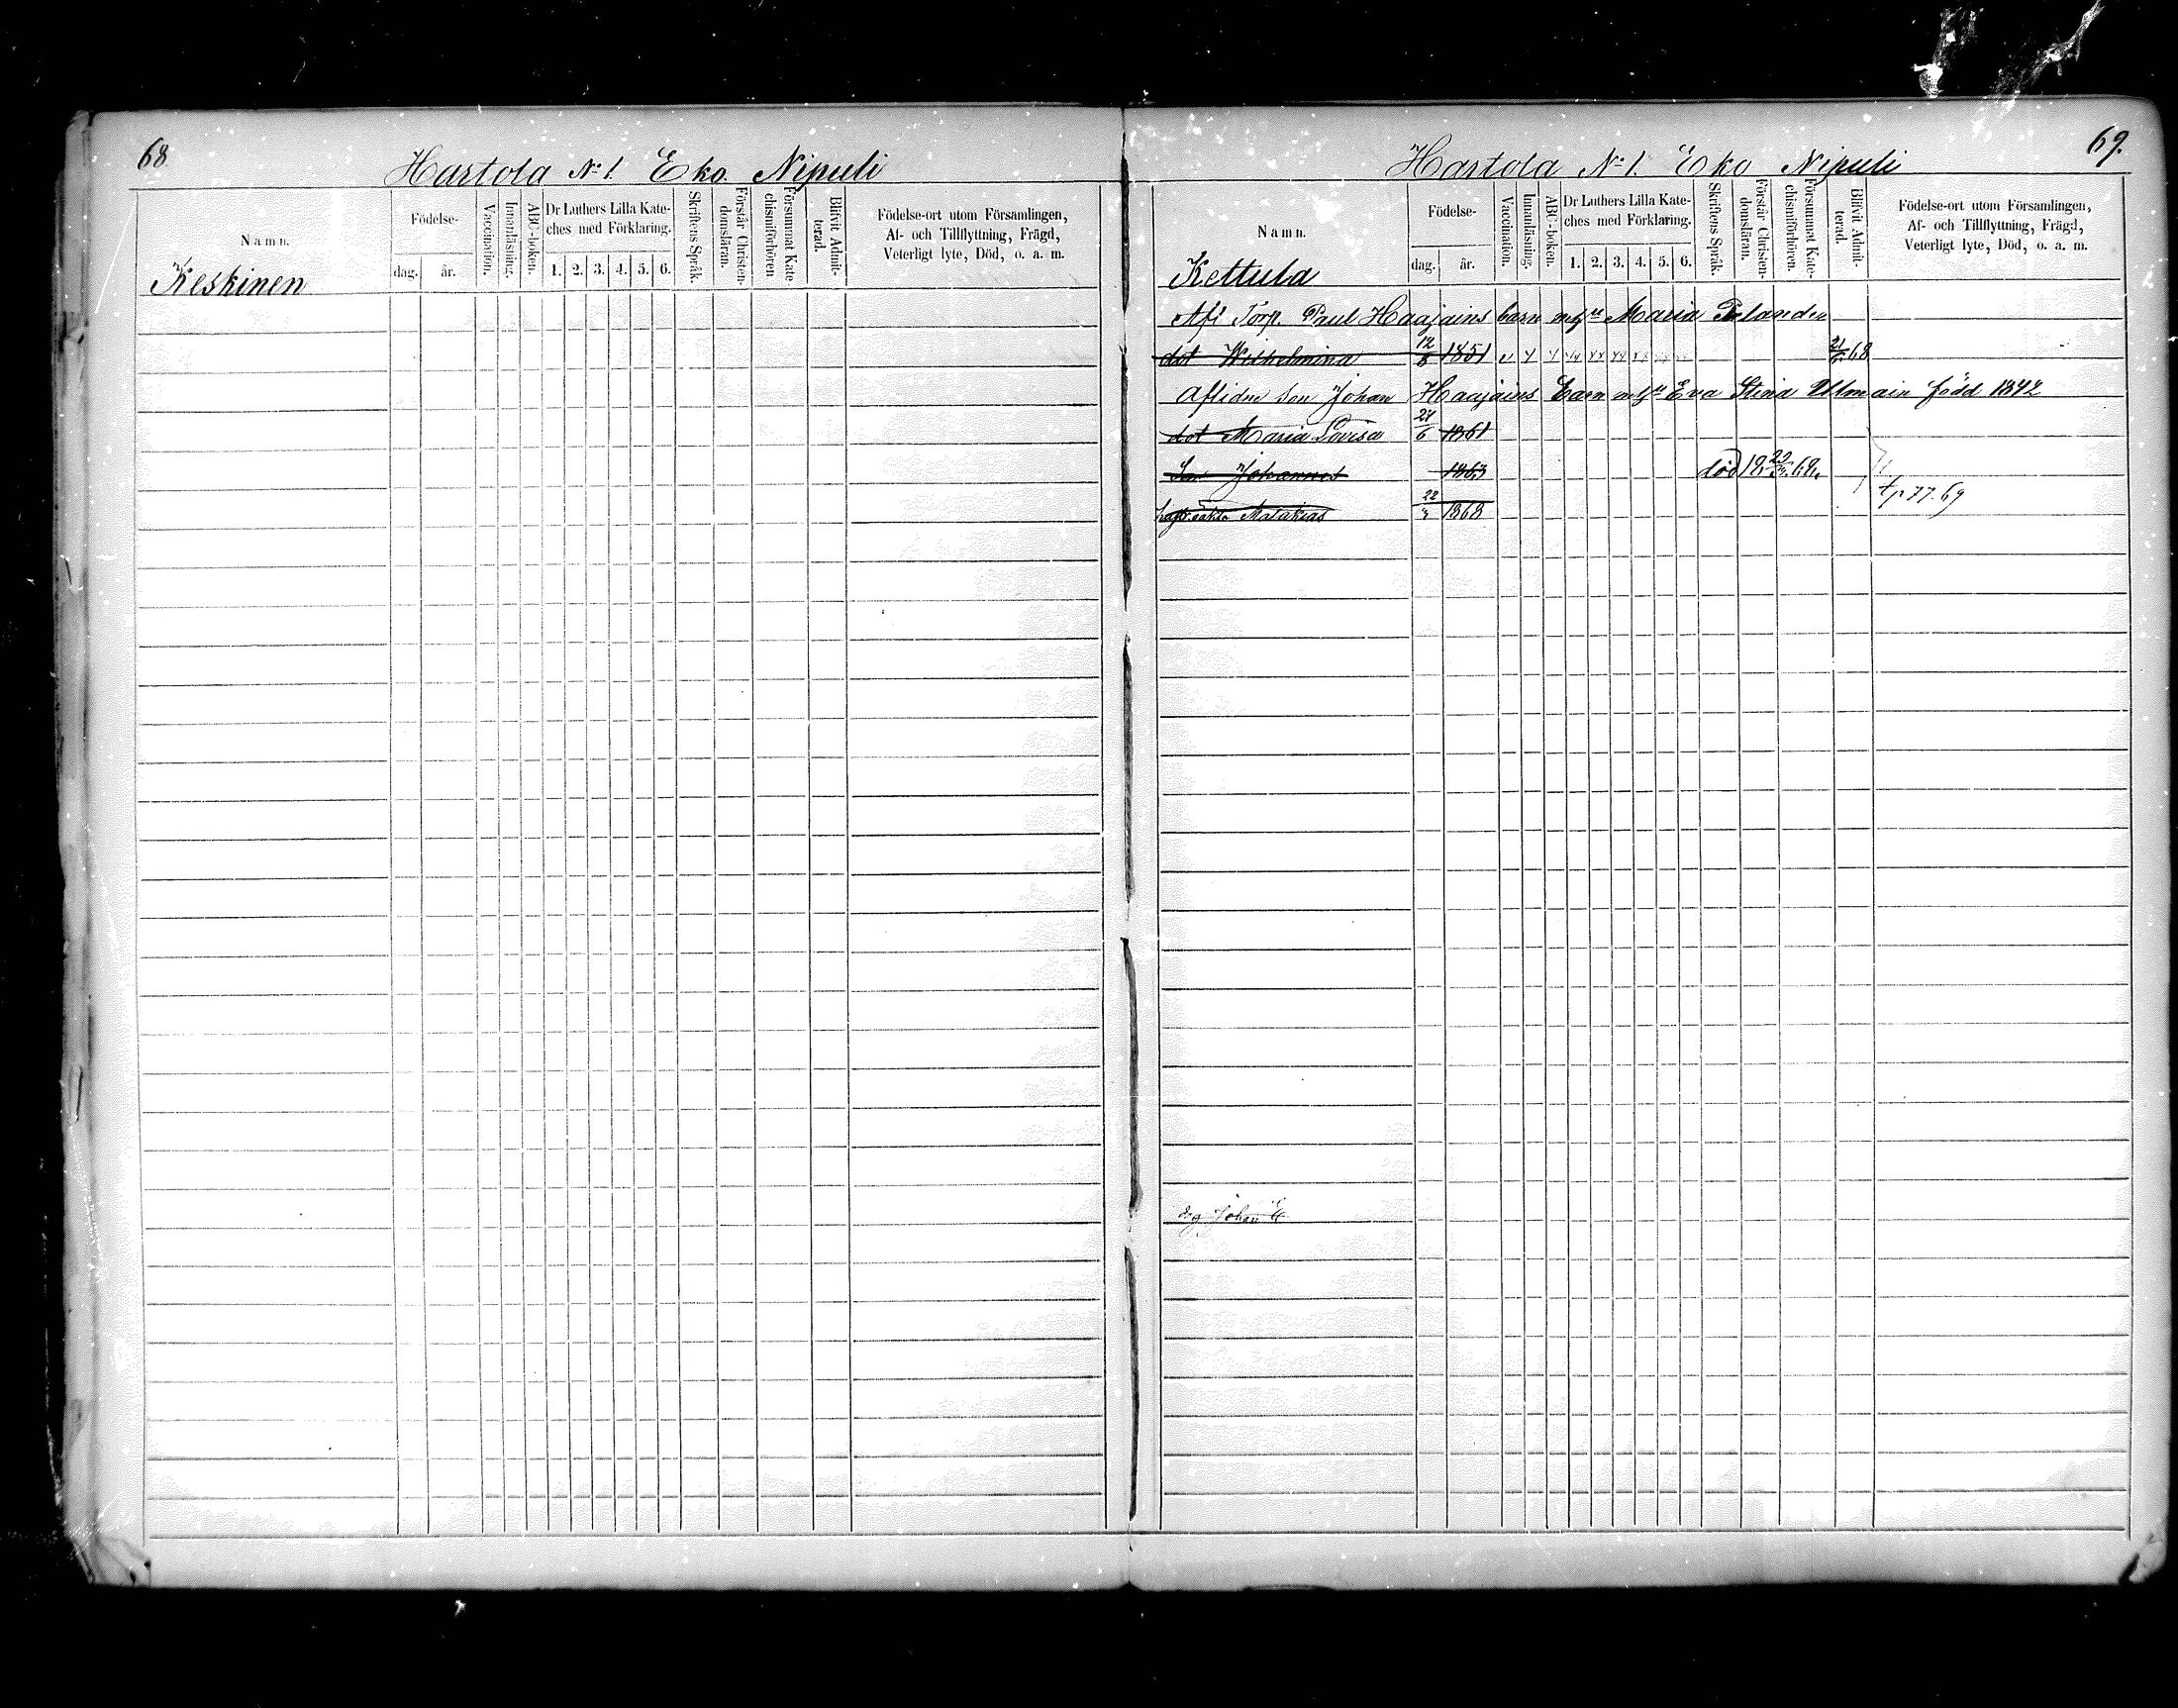 68
Hartola No 1. Eko. Nipuli
Namn.
Födelse-
dag. år.
Vaccination.
Innanläsning.
ABC-boken.
Dr Luthers Lilla Kate-
ches med Förklaring.
1. 2. 3. 4. 5. 6.
Skriftens Språk.
Förstår Christen-
domsläran.
Försummat Kate-
chismiförhören.
Blifvit Admit-
terad.
Födelse-ort utom Församlingen,
Af- och Tillflyttning, Frägd,
Veterligt lyte, Död, o. a. m.
Keskinen
69.
Hartola No 1. Eko Nipuli
Namn.
Födelse-
dag. år.
Vaccination.
Innanläsning.
ABC-boken.
Dr Luthers Lilla Kate-
ches med Förklaring.
1. 2. 3. 4. 5. 6.
Skriftens Språk.
Förstår Christen-
domsläran.
Försummat Kate-
chismiförhören.
Blifvit Admit-
terad.
Födelse-ort utom Församlingen,
Af- och Tillflyttning, Frägd,
Veterligt lyte, Död, o. a. m.
Kettula
Afl Torp. Paul Haajains barn Maria
dot Wilhelmina 12/8 1851 21/6 68
Aflidne son Johan Haajains barn Eva Stina Ullmain född 1842
dot Maria Lovisa 27/6 1861
Son Johannes 1863 död
Matakias 22 1868 77.69
Johan